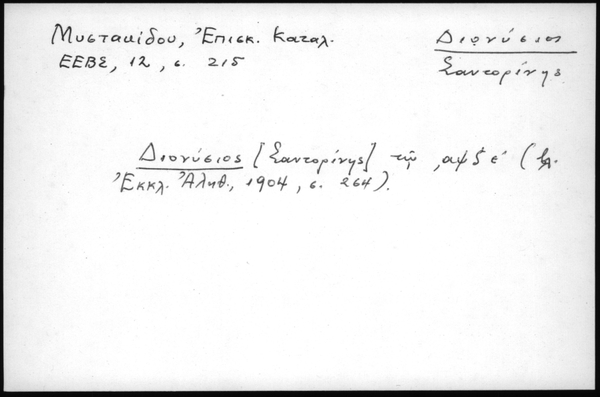 Μυστακίδου, Ἐπισκ. Καταλ.
ΕΕΒΣ, 12, σ. 215
Διονύσιος
Σαντορίνης
Διονύσιος [Σαντορίνης] τῷ ,αψξε' (βλ.
Ἐκκλ. Ἀληθ., 1904, σ. 264).